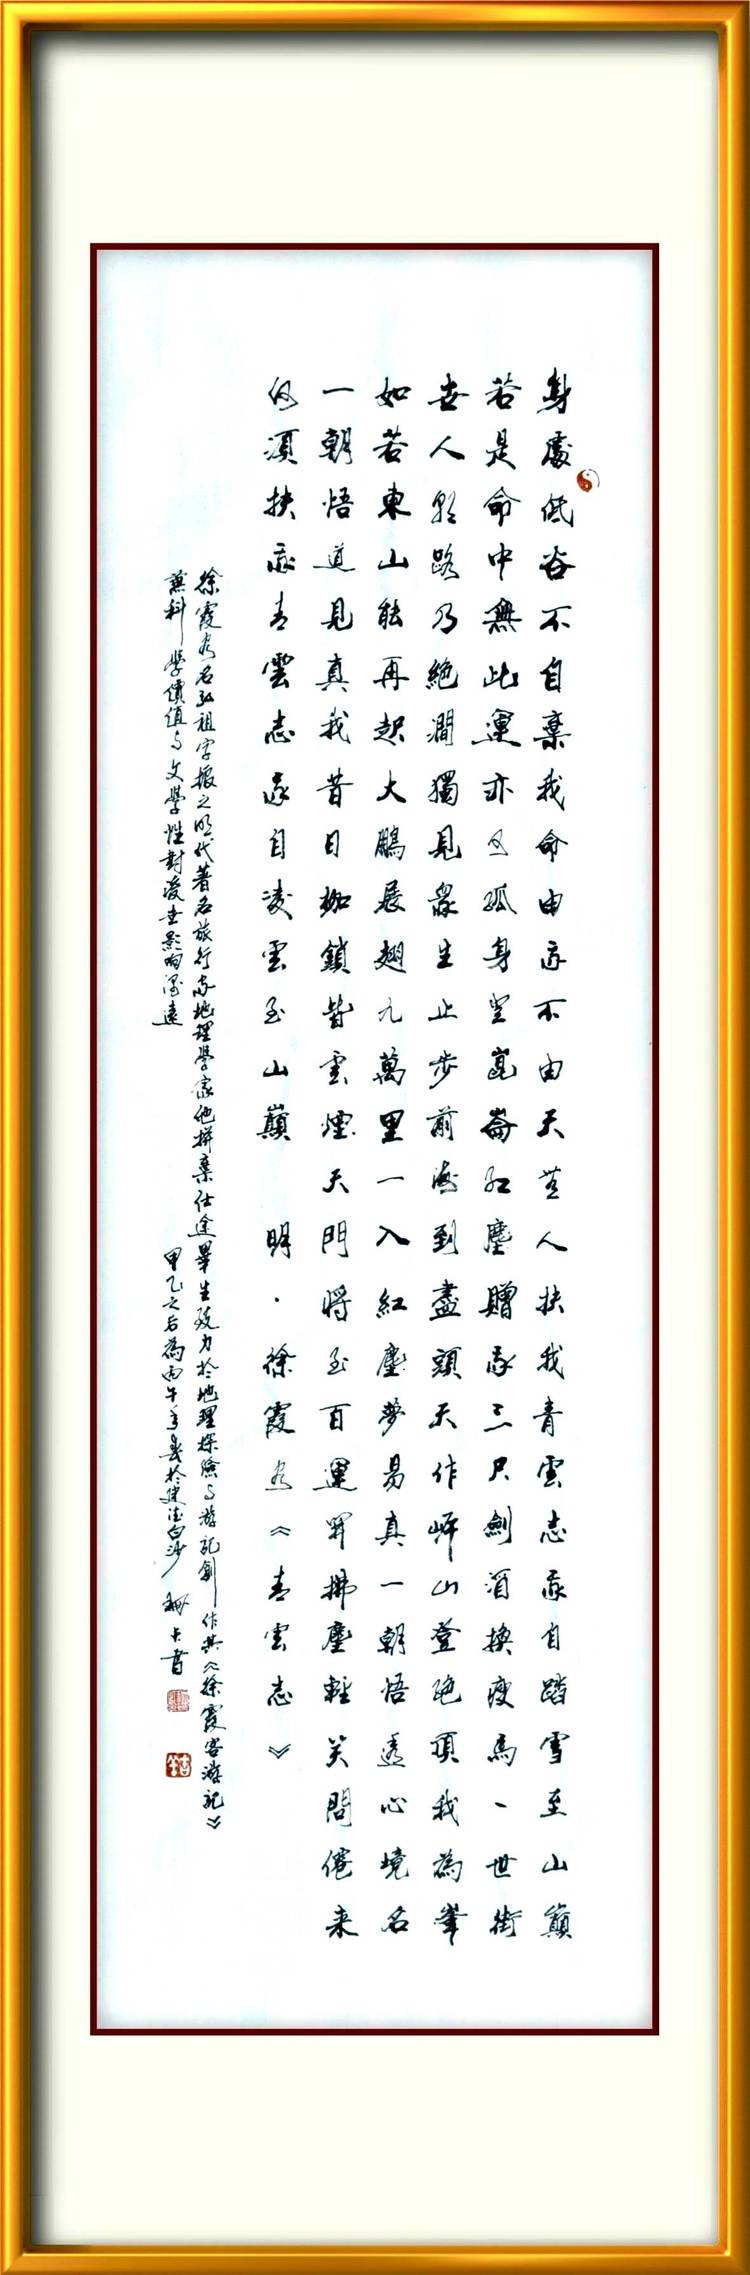 身處低谷不自棄我命由我不由天無人扶我青雲志我自踏雪至山巔
若是命中無此運亦可孤身登崑崙紅塵贈我三尺劍酒換瘦馬一世街
世人路乃絕澗獨見眾生止步前海到盡頭天作岸山登絕頂我為峯
如若東山能再起大鵬展翅九萬里一入紅塵夢易真一朝悟透心境名
一朝悟道見真我昔日枷鎖皆雲煙天門將至百運開拂塵輕笑問倦來
何須扶我青雲志我自凌雲至山巔 明·徐霞客《青雲志》
徐霞客名弘祖字振之明代著名旅行家地理學家他摒棄仕途畢生致力於地理探險与游記創作其《徐霞客游記》
兼科學價值与文學性對後世影响深遠
甲乙之后為丙午年於建德白沙 書